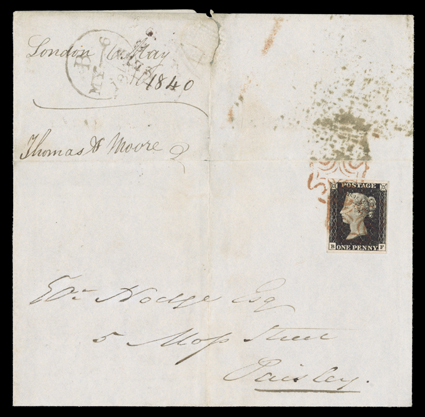 London 6 May
1840
Thomas Moore
POSTAGE
ONE PENNY
Wm. Hodge Esq
5 Moss Street
Paisley.